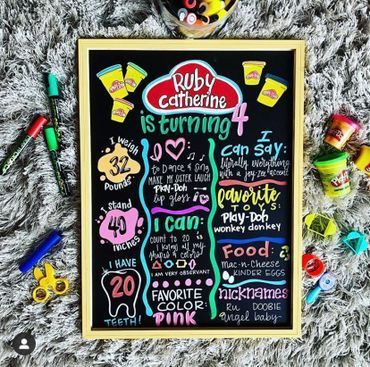 Ruby
Catherine
is turning 4
I weigh
32
pounds
I stand
40
inches
I HAVE
20
TEETH!
I
to Dance & Sing
MAKE MY SISTER LAUGH
PLAY-DOH
lip gloss
I can:
count to 20
I AM VERY OBSERVANT
FAVORITE
COLOR:
PINK
I
can say:
literally everything
with a
accent
favorite
TOYS:
PLAY-DOH
wonkey donkey
Food:
mac-n-Cheese
KINDER EGGS
nicknames
Ru DOOBIE
angel baby